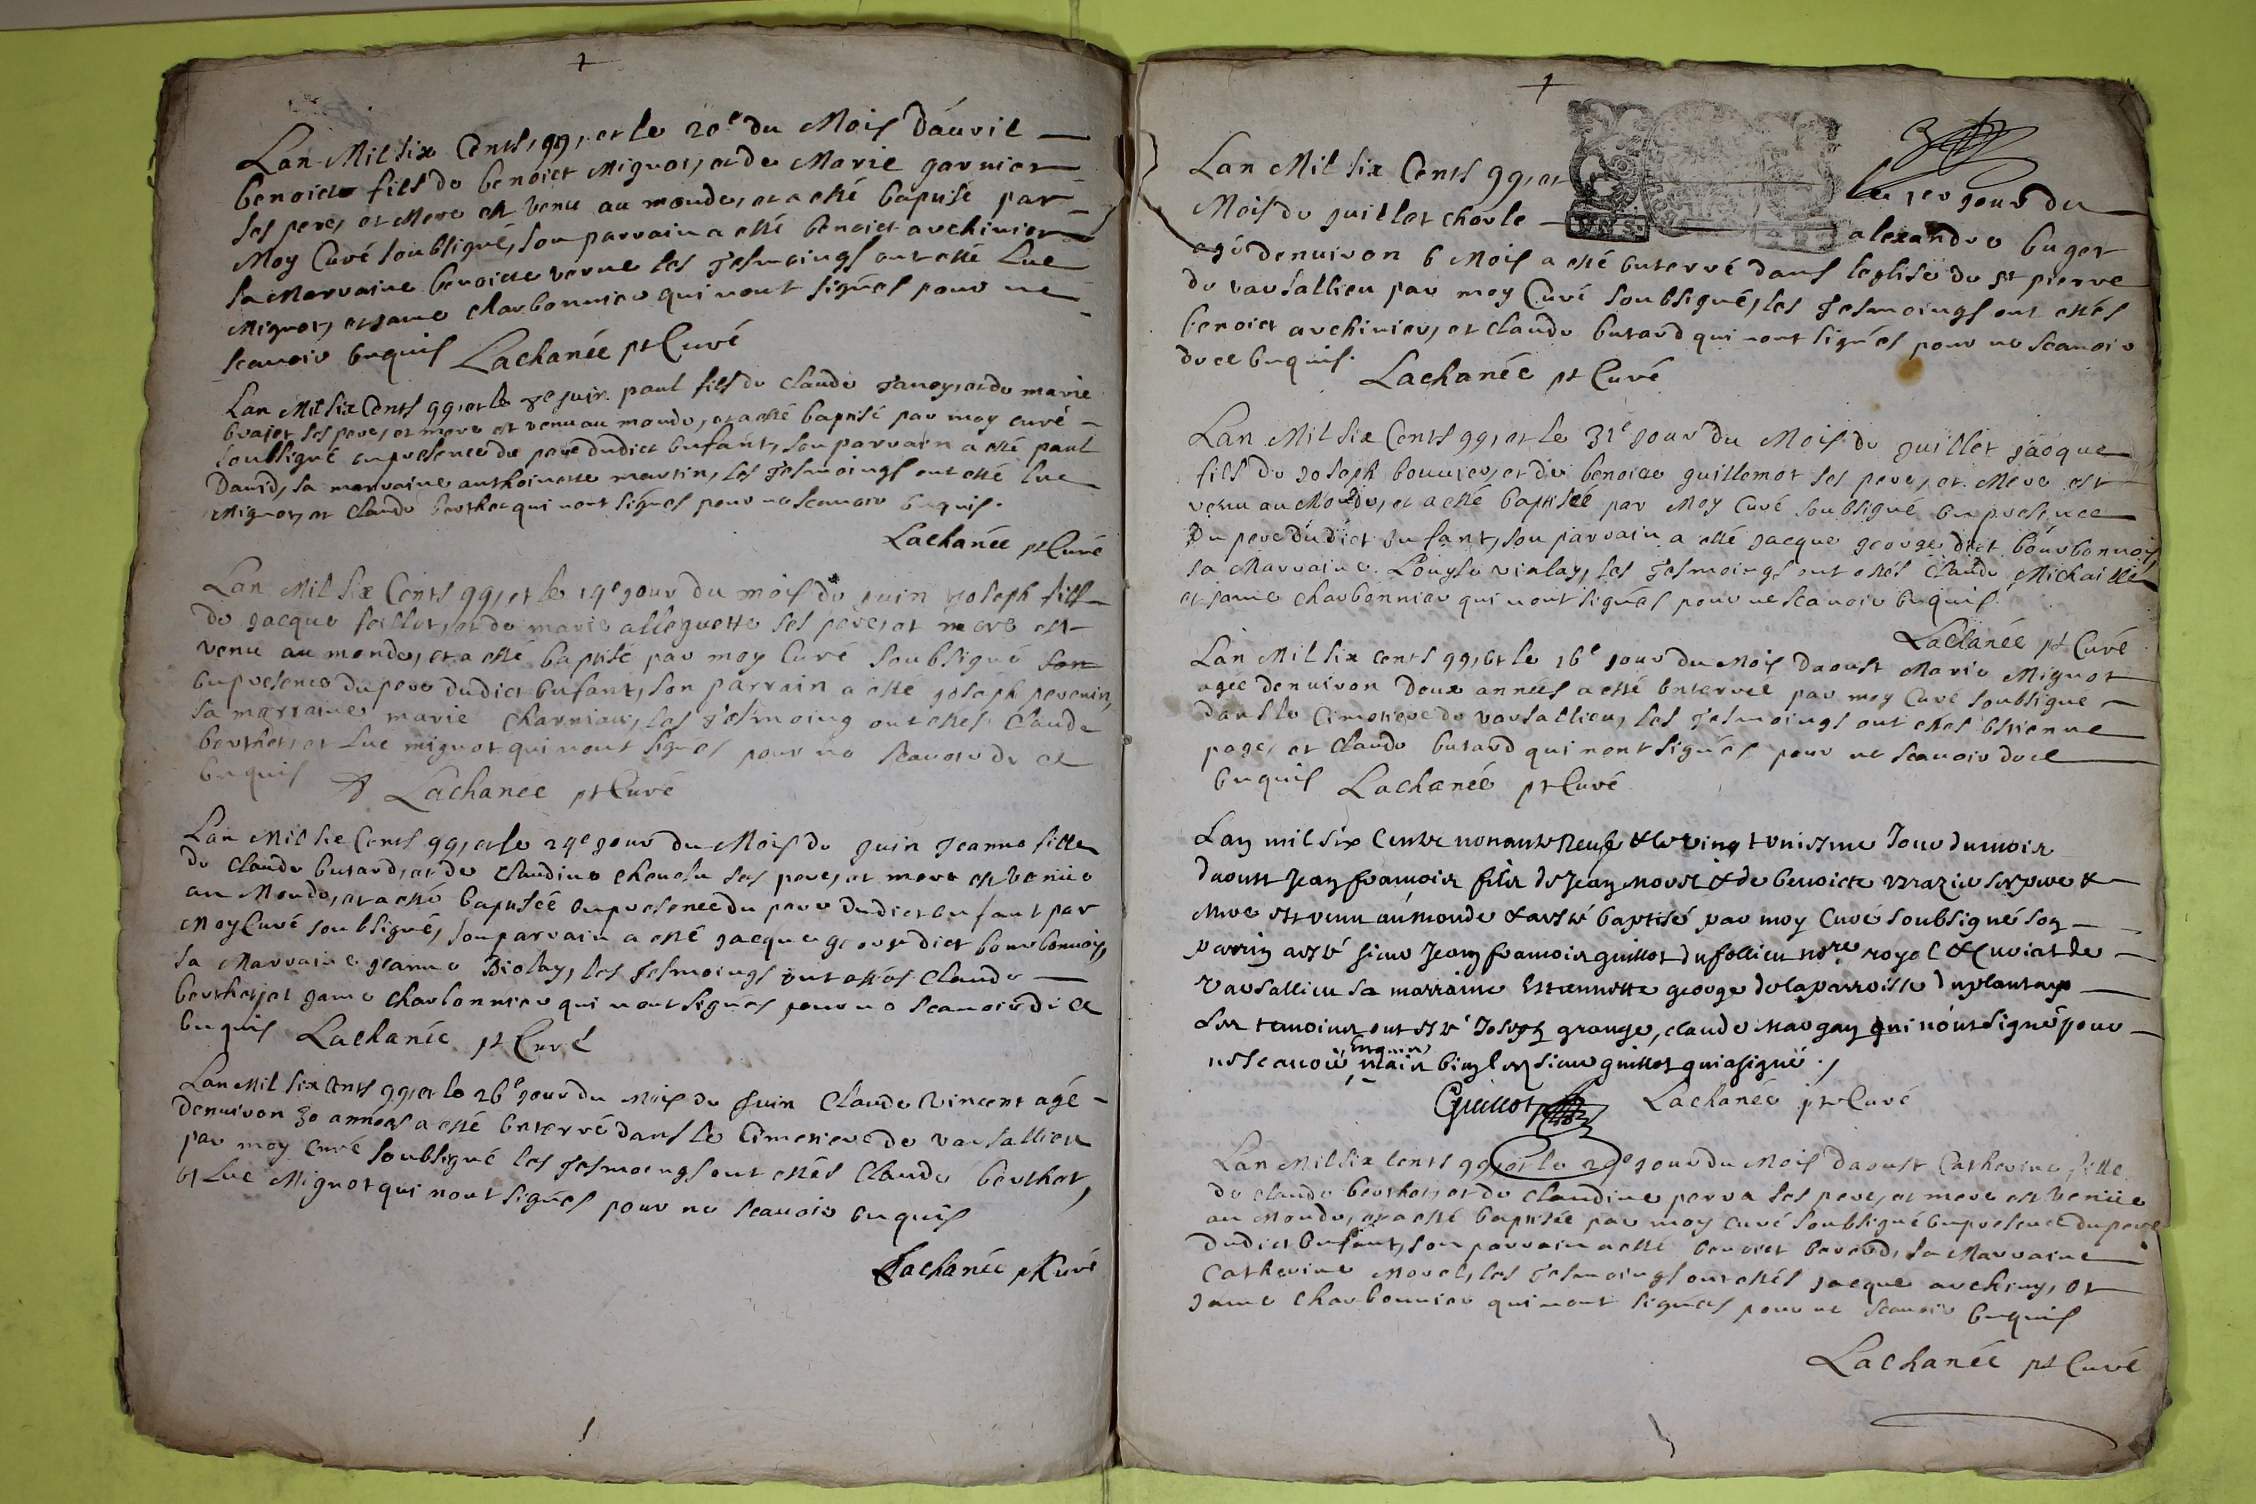 Lan Mil six Cents, 99, et le 20e du Mois dauril
benoicte fils de benoict Mignot, et de Marie garnier
ses pere, et Mere est venu au monde, et a esté baptisé par
Moy Curé soubsigné, son parrain a esté benoict archinier
sa Marraine benoicte verne les Tesmoings ont esté Luc
Mignot, et jame charbonnier qui nont signés pour ne
scauoir enquis Lachanée pt Curé
Lan Mil six Cents 99, et le juin paul fils de claude Tanoy, et de marie
ses pere, et mere est venu au monde, et a esté baptisé par moy curé
soubsigné en presence du pere dudict enfant, son parrain a esté paul
Dauid, sa marraine anthoinette martin, les Tesmoings ont esté luc
Mignot, et Claude berthet qui nont signés pour ne scauoir enquis.
Lachanée pt Curé
Lan Mil six Cents 99, et le 19e jour du mois de juin joseph fils
de jacque feillet, et de marie alleguette ses pere, et mere est
venu au monde, et a esté baptisé par moy Curé soubsigné son
en presence du pere dudict enfant, son parrain a esté joseph peuenin,
sa marraine marie les Tesmoing ont estes Claude
berthet, et Luc mignot qui nont signes pour ne scauoir de ce
enquis Lachanée pt Curé
Lan Mil six Cents 99, et le 24e jour du Mois de juin Jeanne fille
de claude butard, et de claudine cheuelu ses pere, et mere est venüe
au Monde, et a esté baptiséé en presence du pere dudict enfant par
Moy Curé soubsigné, son parrain a esté jacque george dict bourbonnois,
sa Marraine jeanne Biolay, les Tesmoings ont estés claude
berthet, et jame charbonnier qui nont signes pour ne scauoir de ce
enquis Lachanée pt Curé
Lan Mil six Cents 99, et le 26e jour du Mois de juin Claude Vincent agé
denuiron 30 années a esté enterré dans le Cimetiere de varsallieu
par moy curé soubsigné les Tesmoings ont estés Claude berthet,
et Luc Mignot qui nont signés pour ne scauoir enquis
Lachanée pt Curé
Lan Mil six Cents 99, et le 1er jour du
Mois de juillet charle alexandre buget
agé denuiron 6 Mois a esté enterré dans leglise de st pierre
de varsallieu par moy Curé soubsigné, les Tesmoings ont estés
benoict archinier, et claude butard qui nont signés pour ne scauoir
de ce enquis. Lachanée pt Curé
Lan Mil six Cents 99, et le 31e jour du Mois de juillet jacque
fils de joseph bouuier, et de benoicte guillemot ses pere, et Mere est
venu au Monde, et a esté baptisé par Moy Curé soubsigné en presence
du pere dudict enfant, son parrain a esté jacque george dict bourbonnois,
sa Marraine Louyse violay, les Tesmoings ont estés Claude Michaille
et jame charbonnier qui nont signés pour ne scauoir enquis.
Lachanée pt Curé
Lan Mil six cents 99, et le 16e jour du Mois daoust Marie Mignot
agée denuiron deux années a esté enterrée par moy Curé soubsigné
dans le Cimetiere de varsallieu, les Tesmoings ont estes estienne
page, et Claude butard qui nont signés pour ne scauoir de ce
enquis Lachanée pt Curé
Lan mil six Cents nonante Neufz & le vingt unisme Jour du mois
daoust Jean francois fils de Jean morel & de benoicte ses pere &
Mere est venu au monde & a esté baptisé par moy Curé soubsigné son
parrin a esté sieur Jean francois guillot du follieu nore royal & Curial de
varsallieu sa marraine Estiennette george de la parroisse du plantay
Les temoins ont esté Joseph grange, claude margan qui nont signé pour
ne scauoir enquis mais bien led sieur guillot qui a signé.
Guillot Lachanée ptr Curé
Lan Mil six Cents 99, et le 29e jour du Mois daoust Catherine fille
de claude berthet, et de claudine perra ses pere, et mere est venüe
au Monde, et a esté baptisée par moy curé soubsigné en presence du pere
dudict enfant, son parrain a esté benoict berend, sa Marraine
Catherine Morel, les Tesmoings ont estés jacque archiny, et
jame charbonnier qui nont signés pour ne scauoir enquis
Lachanée pt Curé